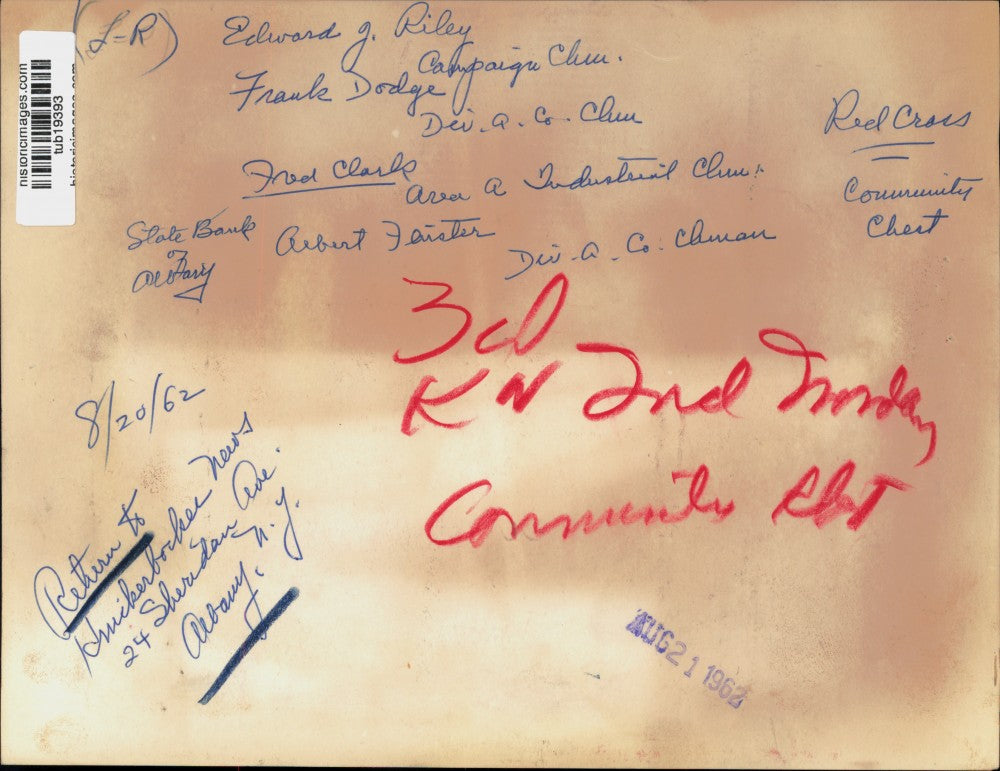 (L-R)
Edward J. Riley
Campaign Chm.
Frank Dodge
Div. A. Co. Chm
Red Cross
Fred Clark
Area A Industrial Chm.
Community
Chest
State Bank
of
Albany
Albert Feister
Div. A. Co. Chman
historicimages.com
tub19393
historicimages.com
3cl
KN 2nd Monday
Community
8/20/62
Return to
Knickerbocker News
24 Sheridan Ave.
Albany, N.Y.
AUG 21 1962